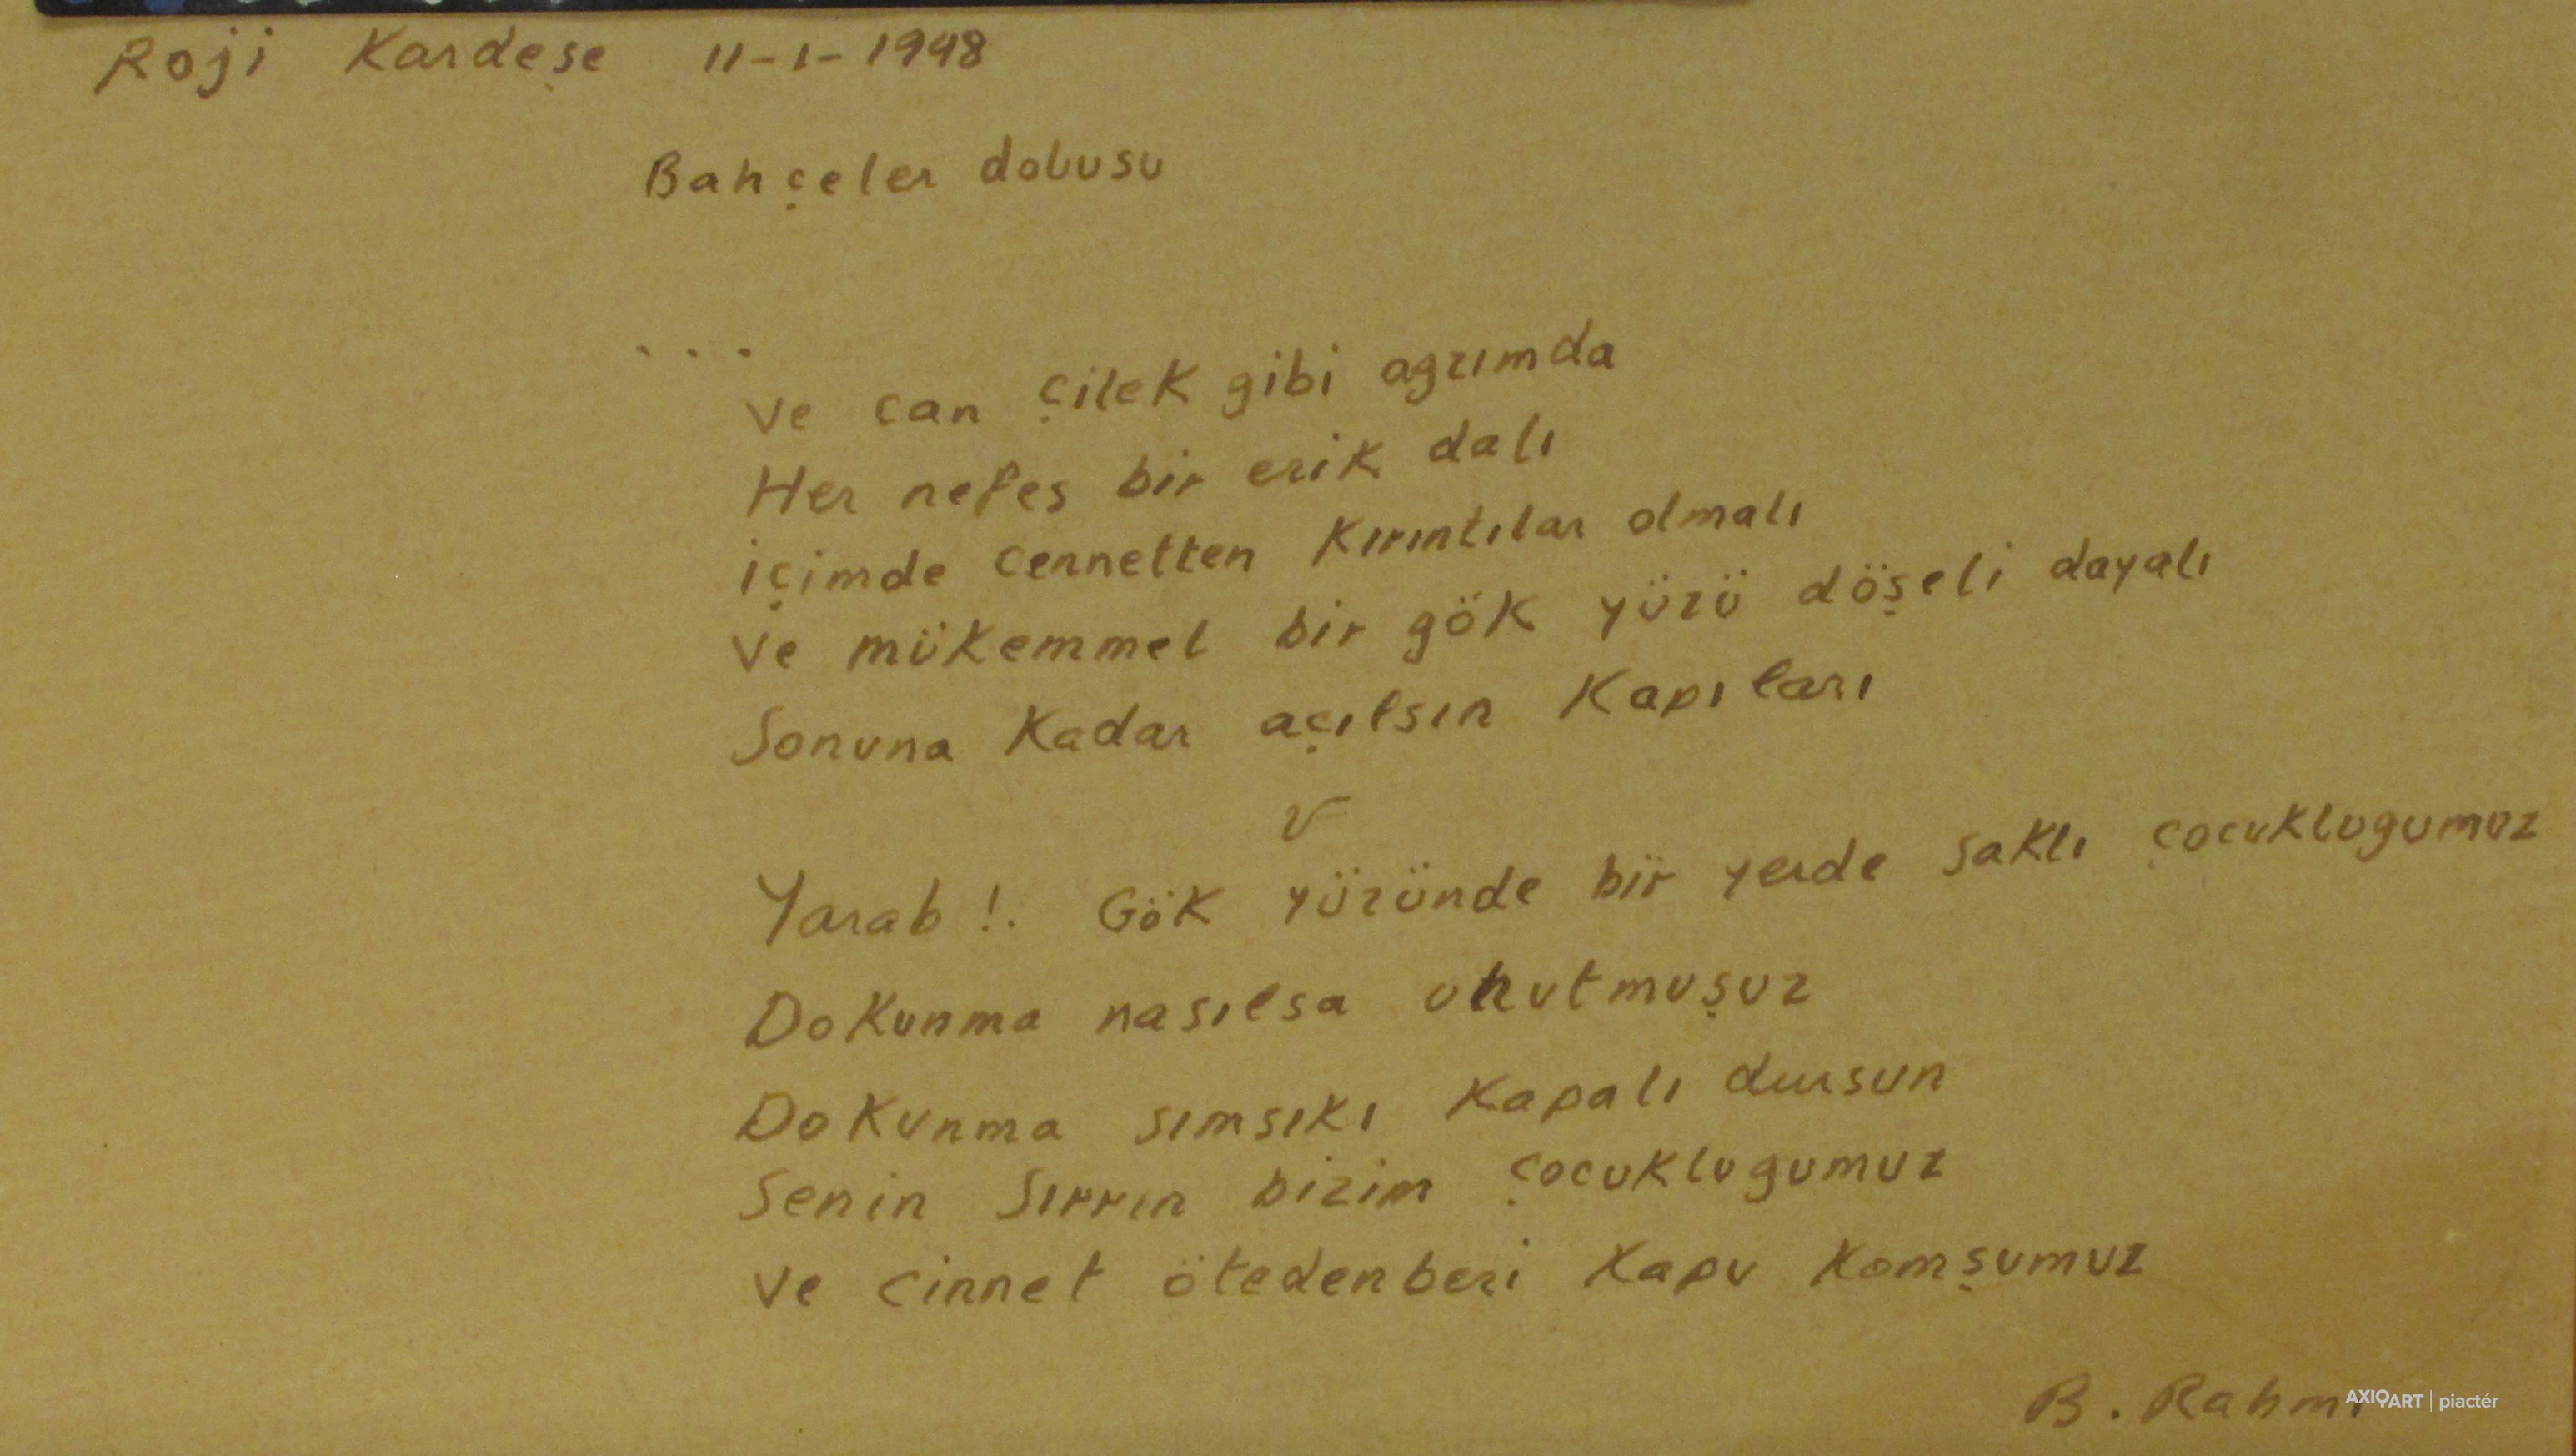 Roji Kardeşe 11-1-1948
Bahçeler dolusu
...
ve can çilek gibi agzımda
Her nefes bir erik dalı
içimde cennetten kırıntılar olmalı
ve mükemmel bir gök yüzü döşeli dayalı
Sonuna kadar açılsın kapıları
Yarab !. Gök yüzünde bir yerde saklı çocuklugumuz
Dokunma nasılsa unutmuşuz
Dokunma sımsıkı kapalı dursun
Senin Sırrın bizim çocuklugumuz
ve cinnet ötedenberi kapu komşumuz
B. Rahmi
AXIOART | piactér